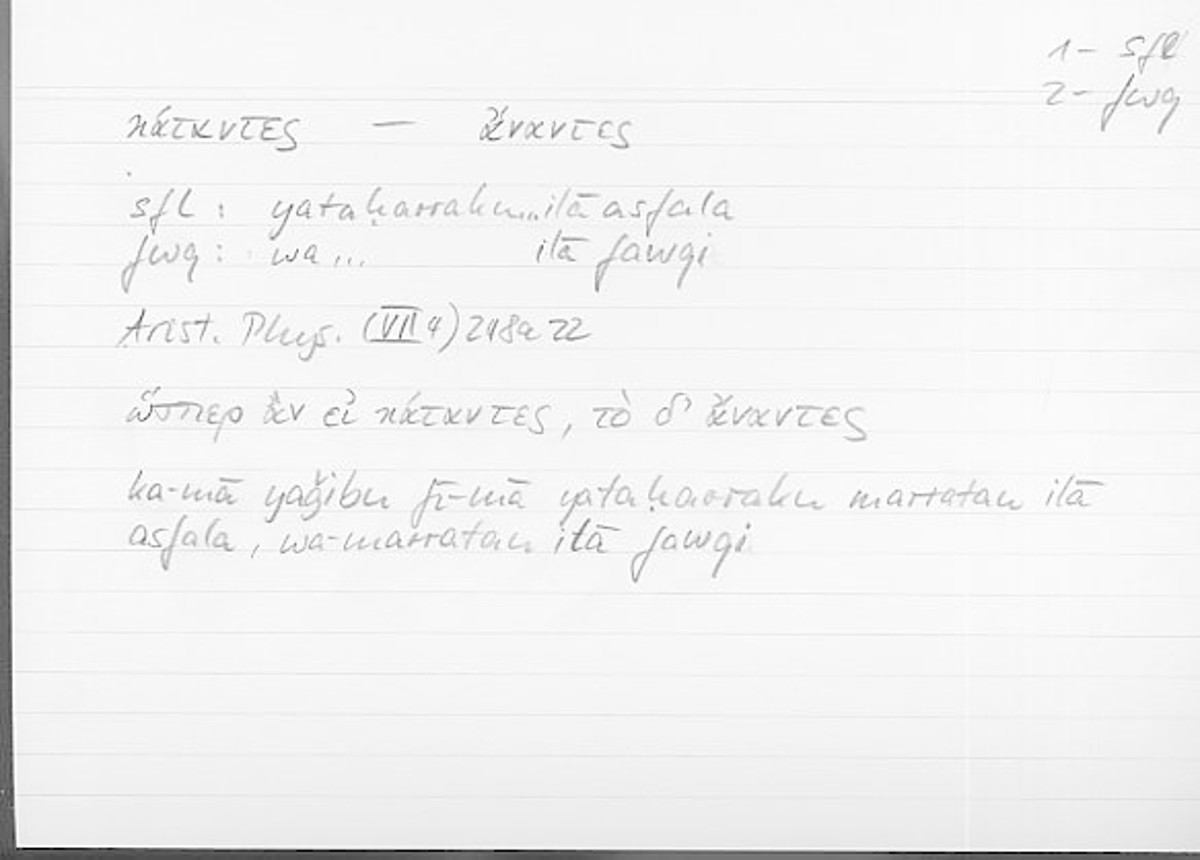 1- sfl
2- fwq
κάταντες — ἄναντες
sfl : yataḥarraku...ilā asfala
fwq : wa... ilā fawqi
Arist. Phys. (VII 4) 248a 22
ὥσπερ ἂν εἰ κάταντες, τὸ δ' ἄναντες
ka-mā yaǧibu fī-mā yataḥarraku marratan ilā
asfala, wa-marratan ilā fawqi